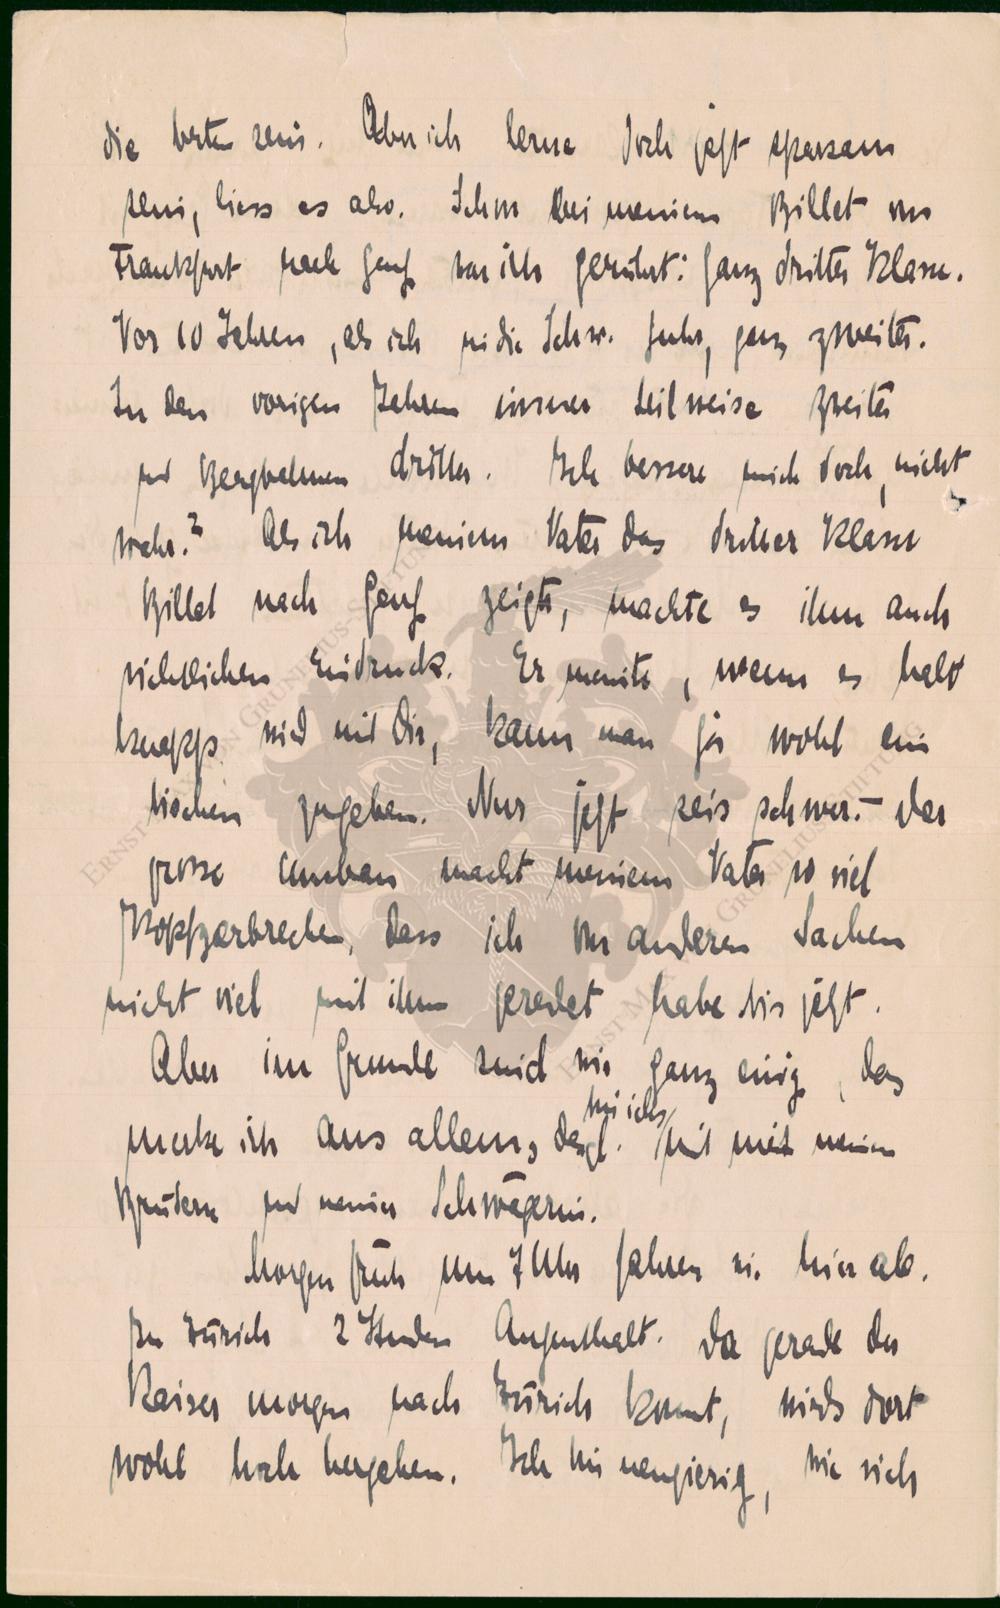 die besten sein. Aber ich lerne doch jetzt sparsam
sein, liess es also. Schon bei meinem Billet von
Frankfurt nach Genf war ich gerührt: ganz dritter Klasse.
Vor 10 Jahren, als ich in die Schw. fuhr, ganz zweiter.
In den vorigen Jahren immer teilweise zweiter
und Bergbahnen dritter. Ich bessere mich doch, nicht
wahr? Als ich meinem Vater das dritter Klasse
Billet nach Genf zeigte, machte es ihm auch
sichtlichen Eindruck. Er meinte, wenn es halt
knapp wird mit Dir, kann man ja wohl ein
bischen zugeben. Nur jetzt seis schwer. – der
grosse Umbau macht meinem Vater so viel
Kopfzerbrechen, dass ich von anderen Sachen
nicht viel mit ihm geredet habe bis jetzt.
Aber im Grunde sind wir ganz einig, das
merke ich aus allem, desgl. bin ichs mit meinen
Brüdern und meiner Schwägerin.
Morgen früh um 7 Uhr fahren wir hier ab.
In Zürich 2 Stunden Aufenthalt. Da gerade der
Kaiser morgen nach Zürich kommt, wirds dort
wohl hoch hergehen. Ich bin neugierig, wie sich
ERNST-MAX VON GRUNELIUS-STIFTUNG
ERNST-MAX VON GRUNELIUS-STIFTUNG